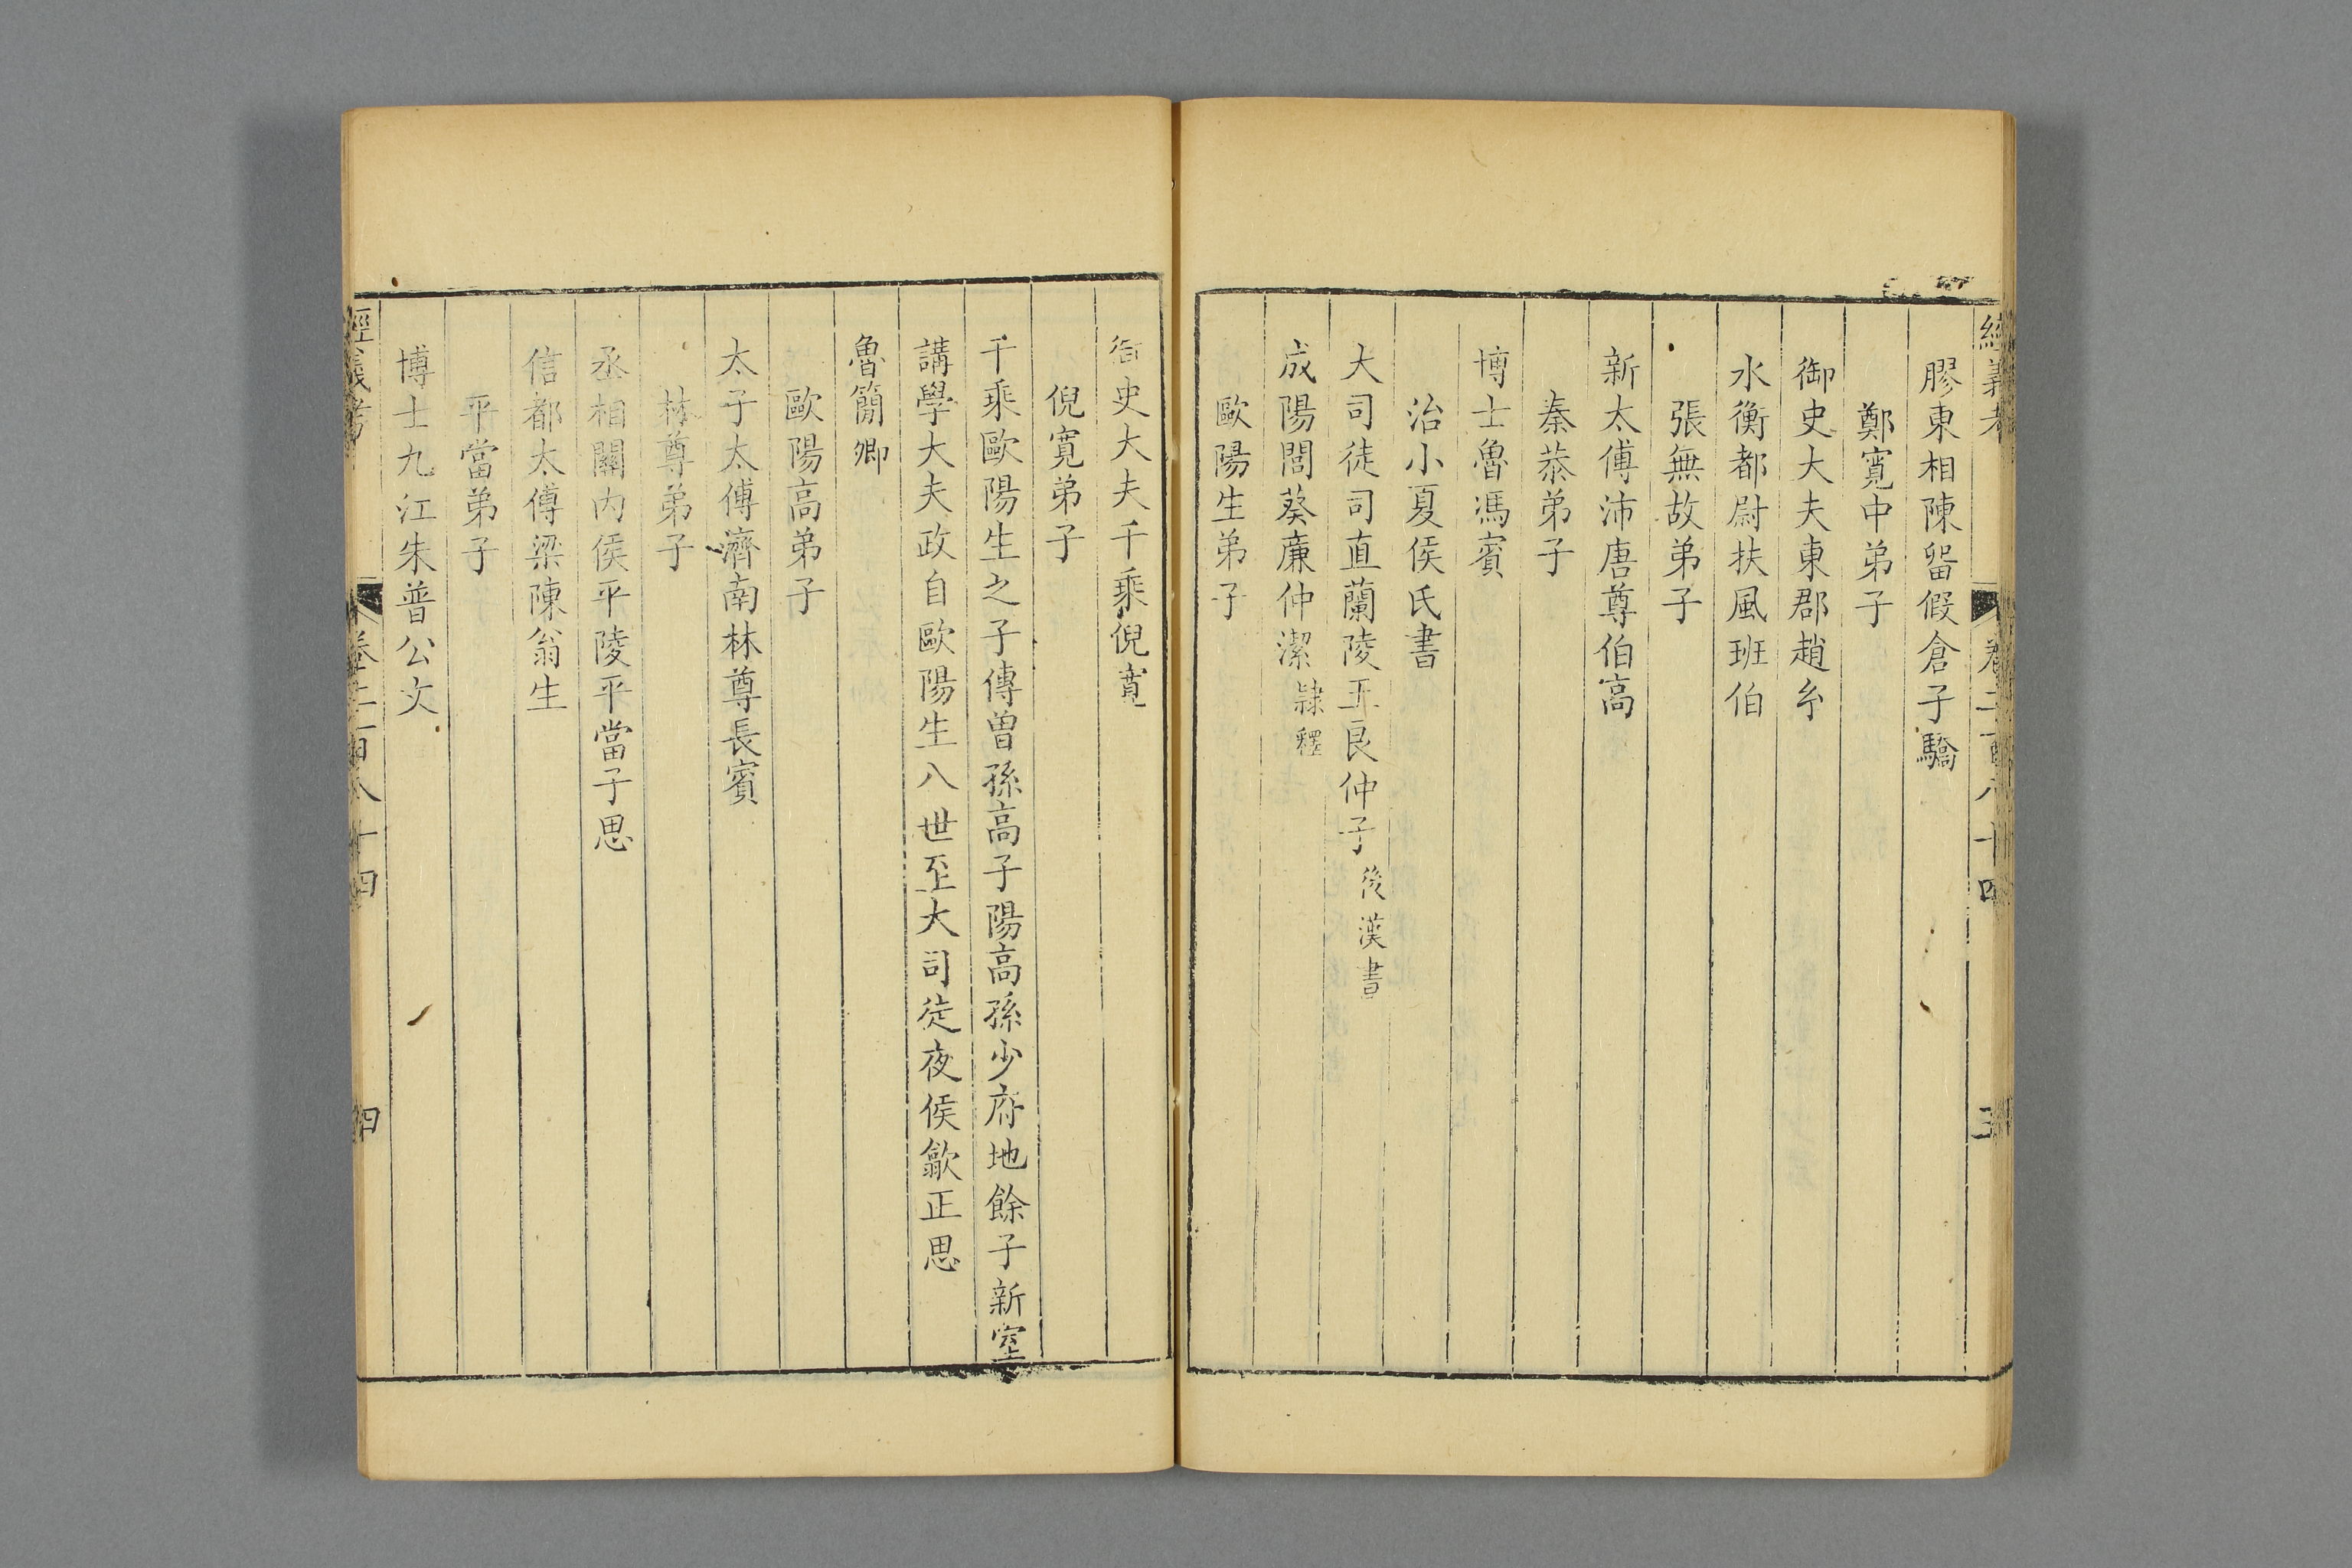 經義考 卷二百八十四 三
膠東相陳畱假倉子驕
鄭寬中弟子
御史大夫東郡趙
水衡都尉扶風班伯
張無故弟子
新太傅沛唐尊伯高
秦恭弟子
博士魯馮賓
治小夏侯氏書
大司徒司直蘭陵王良仲子後漢書
成陽閭葵廉仲潔隸釋
歐陽生弟子
御史大夫千乘倪寬
倪寬弟子
千乘歐陽生之子傳曾孫高子陽高孫少府地餘子新室
講學大夫政自歐陽生八世至大司徒夜侯歙正思
魯簡卿
歐陽高弟子
太子太傅濟南林尊長賓
林尊弟子
丞相關內侯平陵平當子思
信都太傅梁陳翁生
平當弟子
博士九江朱普公文
經義考 卷二百八十四 四